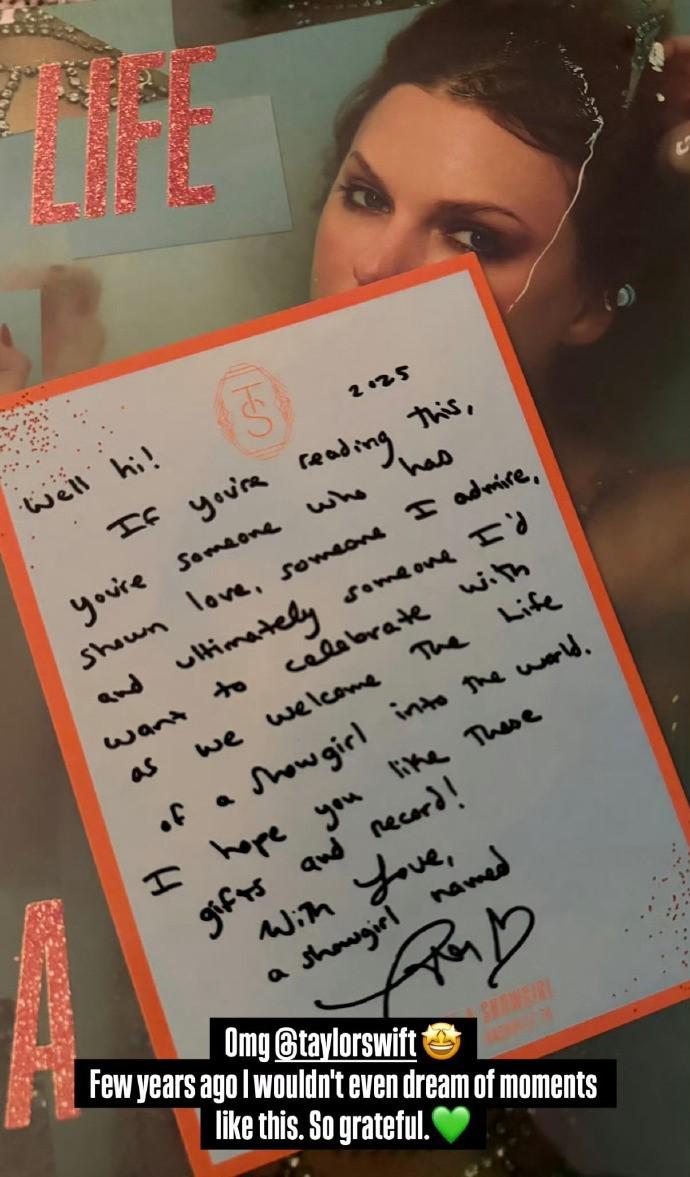 LIFE
TS
2025
Well hi!
If you're reading this,
you're someone who has
shown love, someone I admire,
and ultimately someone I'd
want to celebrate with
as we welcome The Life
of a Showgirl into the world.
I hope you like these
gifts and record!
With Love,
a showgirl named
A SHOWGIRL
A
Omg @taylorswift 🤩
Few years ago I wouldn't even dream of moments
like this. So grateful.💚